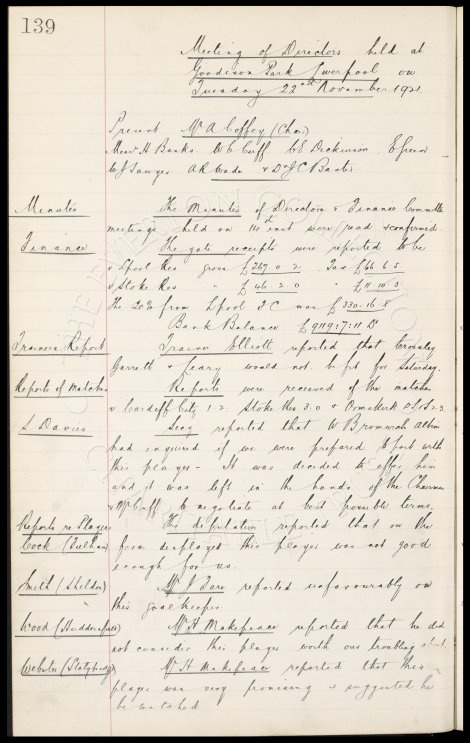 139
Meeting of Directors held at
Goodison Park Liverpool on
Tuesday 22nd November 1921
Present Mr A Coffey (Chair)
Messrs H Banks W C Cuff C E Dickinson E Green
W J Sawyer A R Wade & Dr J C Baxter
Minutes The Minutes of Directors & Finance Committee
meetings held on 14th inst were read & confirmed
Finance The gate receipts were reported to be
v Lpool Res gross £267.0.2 Tax £66.6.5
v Stoke Res " £46.2.0 " £11.10.3
The 20% from Lpool F C was £330.16.8
Bank Balance £9119:7:11 Dr
Trainers Report Trainer Elliott reported that Crossley
Garrett & Leary would not be fit for Saturday.
Reports of Matches Reports were received of the matches
v Cardiff City 1.2. Stoke Res 3.0 & Ormskirk 2.3
S Davies Secy reported that W Bromwich Albion
had enquired if we were prepared to part with
this player - It was decided to offer him
and it was left in the hands of the Chairman
& Mr Cuff to negotiate at best possible terms.
Reports re Players The deputation reported that on the
Cock (Fulham) form displayed this player was not good
enough for us.
Smith (Shildon) Mr J Fare reported unfavourably on
this goalkeeper
Wood (Huddersfield) Mr H Makepeace reported that he did
not consider this player worth our troubling about
Webster (Stalybridge) Mr H Makepeace reported that this
player was very promising & suggested he
be watched